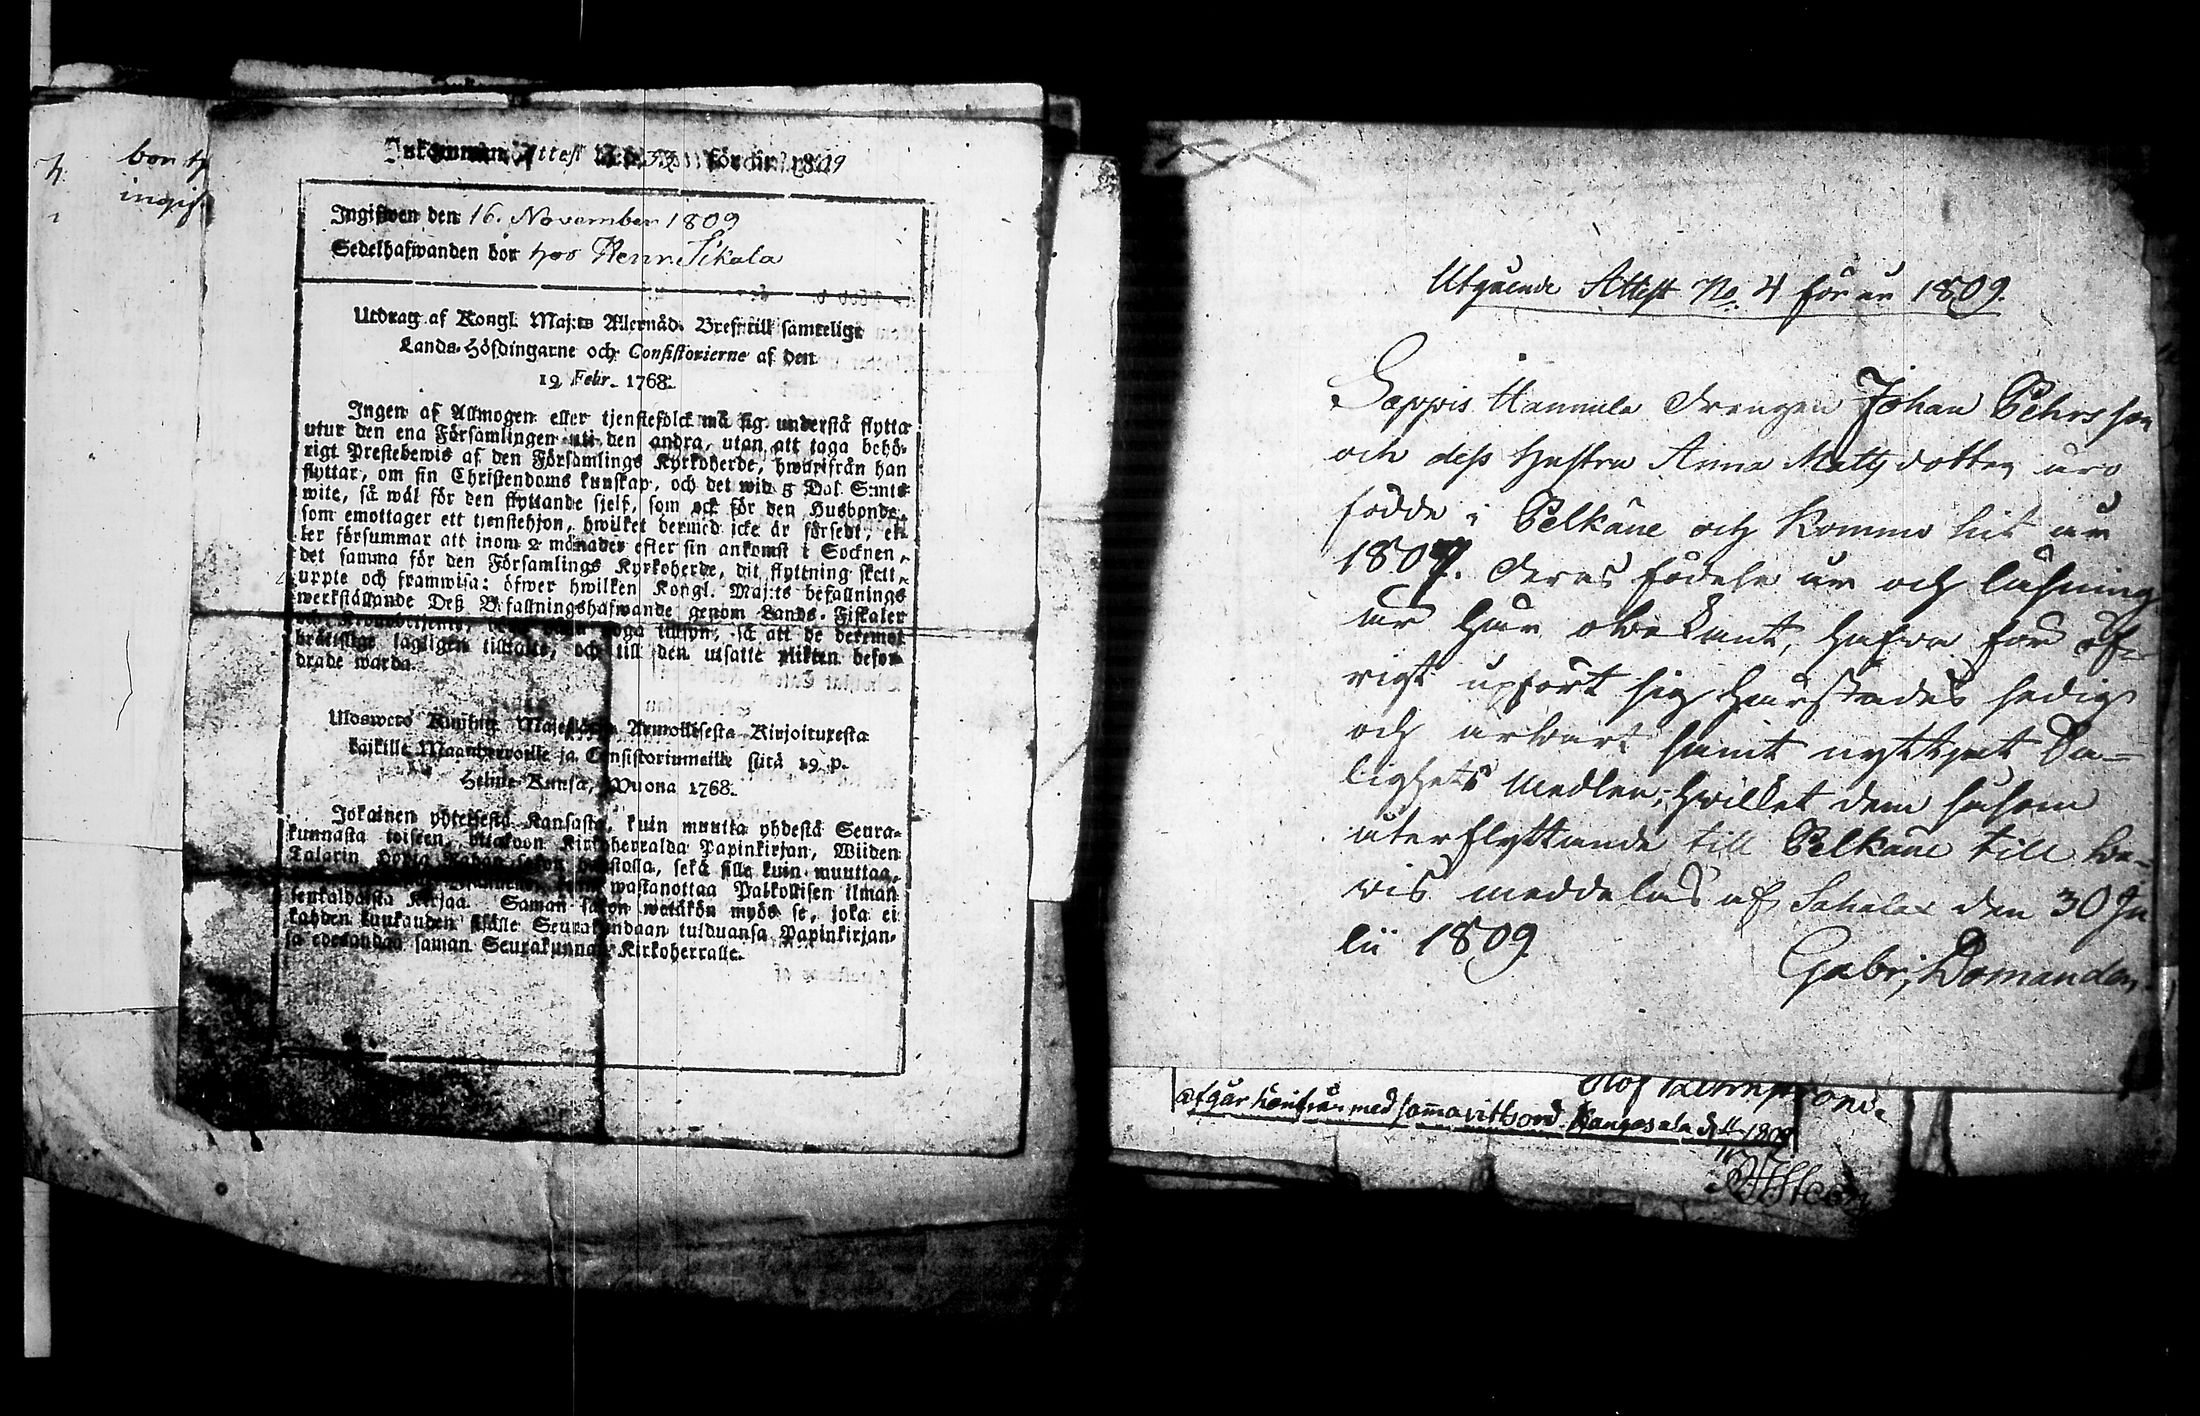 bor h
ingif
Inkommen Attest N:o 33 för år 1809
Ingifwen den 16. November 1809
Sedelhafwanden bor hos Henr. Sikala
Utdrag af Kongl. Maj:ts Allernåd. Bref till samtelige
Lands-Höfdingarne och Consistorierne af den
19 Febr. 1768.
Ingen af Allmogen eller tjenstefolck må sig understå flytta
utur den ena Församlingen uti den andra, utan att taga behö-
rigt Prestebewis af den Församlings Kyrkoherde, hwarifrån han
flyttar, om sin Christendoms kunskap, och det wid 5 Dal. S:mts
wite, så wäl för den flyttande sjelf, som ock för den Husbonde,
som emottager ett tjenstehjon, hwilket dermed icke är försedt, el-
ler försummar att inom 2 månader efter sin ankomst i Socknen,
det samma för den Församlings Kyrkoherde, dit flyttning skett,
uppte och framwisa: öfwer hwilken Kongl. Maj:ts befallnings
werkställande Deß Befallningshafwande genom Lands-Fiskaler
noga tillsyn, så att de deremot
brätslige lagligen tilltalte, och till den utsatte plikten befor-
drade warda.
Ulosweto Kuning. Majestätin Armollisesta Kirjoituxesta
kaikille Maanherroille ja Consistoriumeille siitä 19 p.
Helme-Kuusa, Wuona 1768.
Jokainen yhteisestä Kansasta, kuin muutta yhdestä Seura-
kunnasta toiseen, ottakoon Kirkoherralda Papinkirjan, Wiiden
Talarin Hopia Rahan sakon uhastolla, sekä sille kuin muuttaa,
wastanottaa Palkollisen ilman
senkaldaista Kirjaa. Saman sakon wetäkön myös se, joka ei
kahden kuukauden sisälle Seurakundaan tulduansa Papinkirjan-
sa edesandaa saman Seurakunnan Kirkoherralle.
Utgående Attest No. 4 för år 1809.
Sappis Hannula Drengen Johan Pehrsson
och dess Hustru Anna Mattsdotter äro
födde i Pelkäne och komne hit år
1807. Deras födelse år och läsning
är här obekant, hafva för öf-
rigt upfört sig härstädes sedigt
och ärbart samt nyttjat Sa-
lighets Medlen; Hvilket dem såsom
återflyttande till Pelkäne till be-
vis meddelas af Sahalax den 30 Ju
lii 1809
Gabr. Domander.
Olof
afgår härifrån med samma vittsord. Kangasala d. 1809